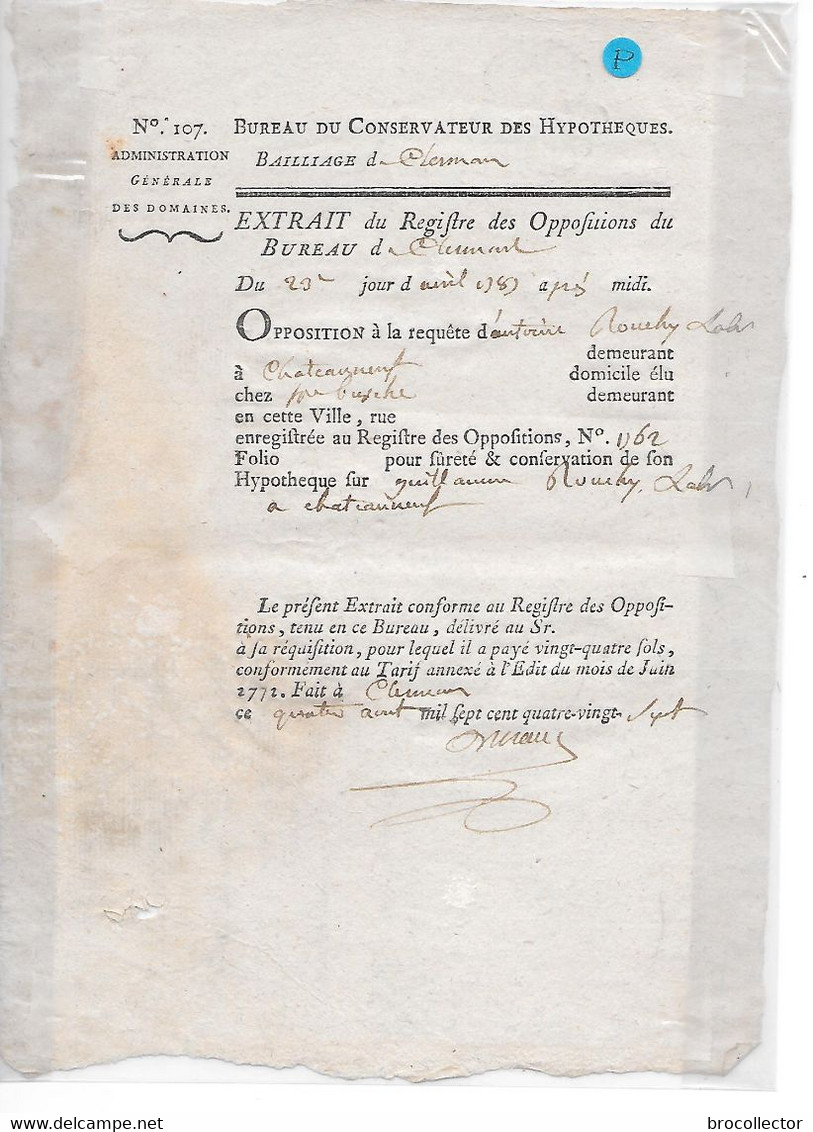 P
No. 107. BUREAU DU CONSERVATEUR DES HYPOTHEQUES.
ADMINISTRATION GÉNÉRALE DES DOMAINES.
BAILLIAGE d
EXTRAIT du Regiſtre des Oppoſitions du
BUREAU d
Du 23e jour d avril après midi.
OPPOSITION à la requête d'antoine Rouchy Labr
demeurant
à Chateauneuf domicile élu
chez demeurant
en cette Ville, rue
enregiſtrée au Regiſtre des Oppoſitions, No. 1762
Folio pour ſûreté & conſervation de ſon
Hypotheque ſur guillaume Rouchy Labr
a chateauneuf
Le préſent Extrait conforme au Regiſtre des Oppoſi-
tions, tenu en ce Bureau, délivré au Sr.
à ſa réquiſition, pour lequel il a payé vingt-quatre ſols,
conformement au Tarif annexé à l'Edit du mois de Juin
1771. Fait à
ce quatre aout mil ſept cent quatre-vingt- Sept
delcampe.net
brocollector